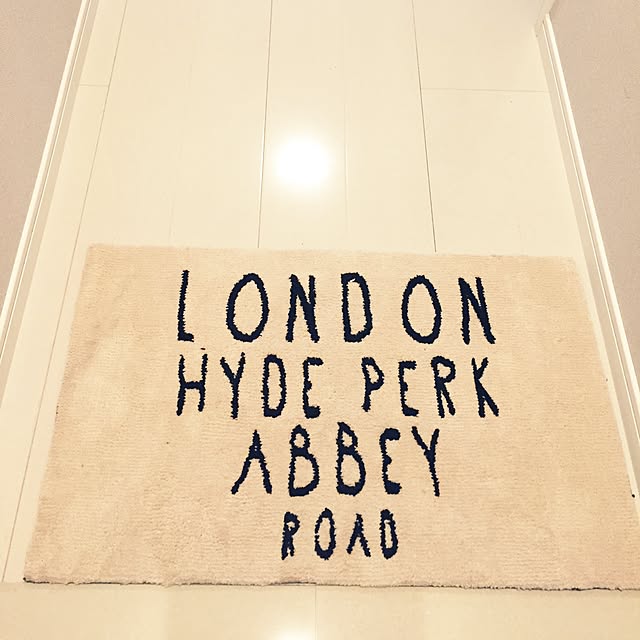 LONDON
HYDE PERK
ABBEY
ROAD